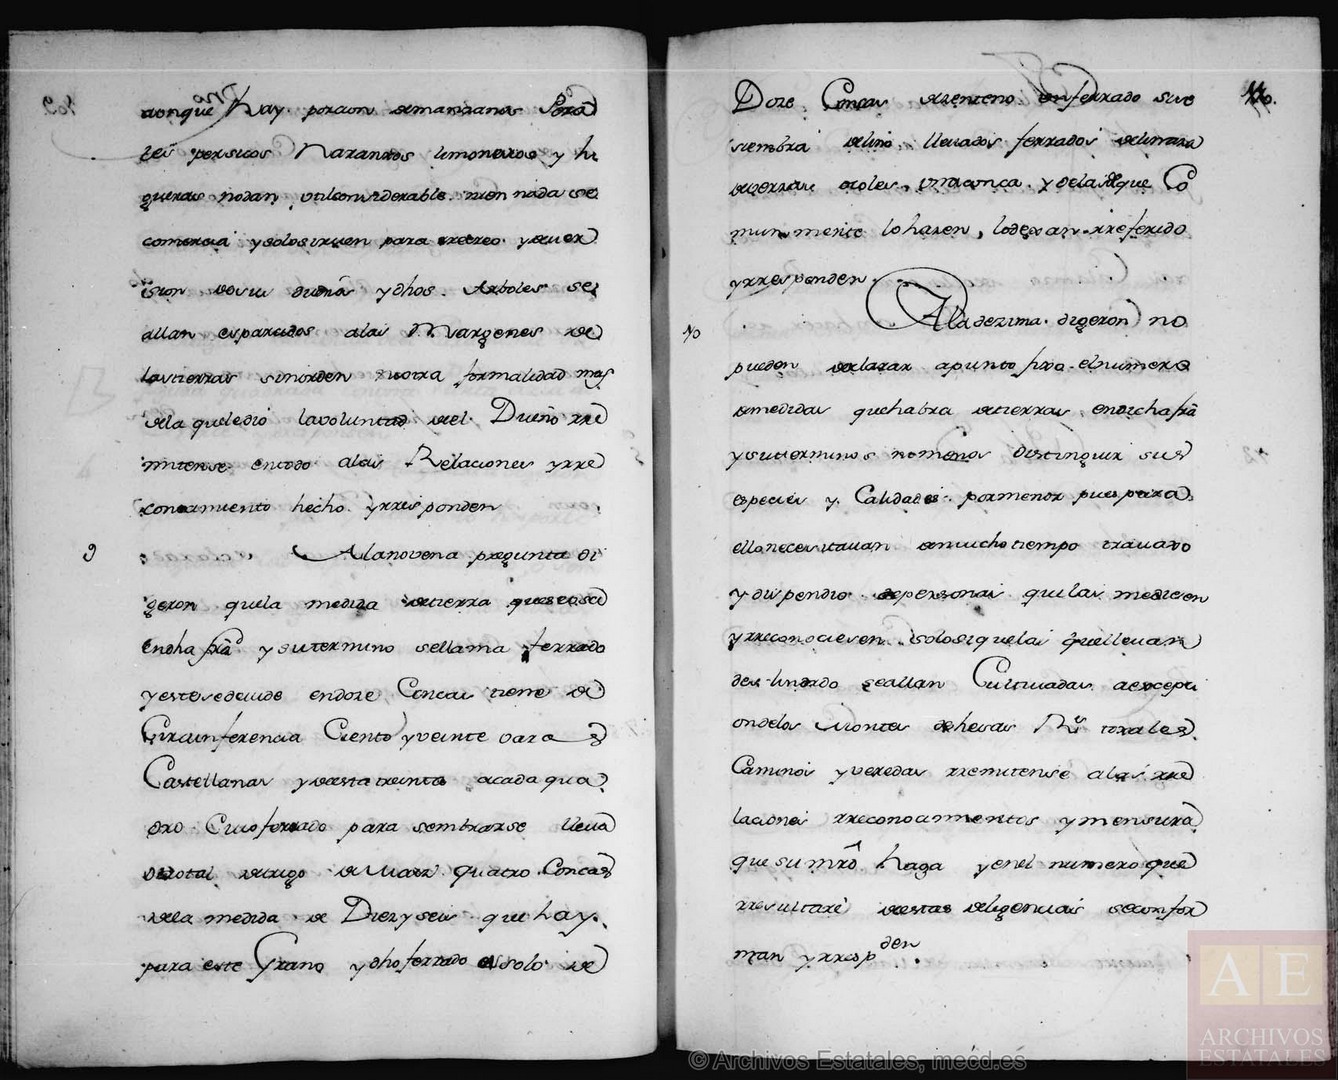 aonque hay porcion de manzanos Pera
les persicos Naranxos limoneiros y hi
gueras nodan util considerable nien nada se
comercia y solo siruen para recreo y diuer
sion de sus dueños y dhos Arboles se
allan esparcidos a las Margenes de
las tierras sin orden ni otra formalidad mas
de la que le dió la voluntad del Dueño rre
mitense en todo alas Relaciones y rre
conocimiento hecho y rresponden
9
A la novena pregunta di
geron que la medida de tierra que se usa
en dha fra y su termino se llama ferrado
y este se deuide en doze Concas tiene de
Circunferencia Ciento y veinte varas
Castellanas y desta treinta acada qua
dro Cuio ferrado para sembrarse lleua
de total de trigo de Maiz quatro Concas
de la medida de Diez y seis que hay
para este Grano y dho ferrado es solo de
110.
Doze Concas de zenteno un ferrado si se
siembra de lino lleua dos ferrados de linaza
y de la que Co
munmente lo hazen, lo dexan rreferido
y rresponden
10
A la dezima digeron no
pueden declarar a punto fixo el numero
de medidas que habra de tierras en dicha fra
y su termino ni menos distinguir sus
especies y Calidades por menor pues para
ello necesitauan de mucho tiempo trauaxo
y dispendio de personas que las medicen
y rreconociesen solo si que las que lleuan
deslindado se allan Cultiuadas a excepci
on de los Montes dehesas Rs toxales
Caminos y veredas rremitense a las rre
laciones rreconocimientos y mensura
que su mrd haga y en el numero que
rresultare destas deligencias se confor
man y rrespden.
© Archivos Estatales, mecd.es
AE
ARCHIVOS
ESTATALES